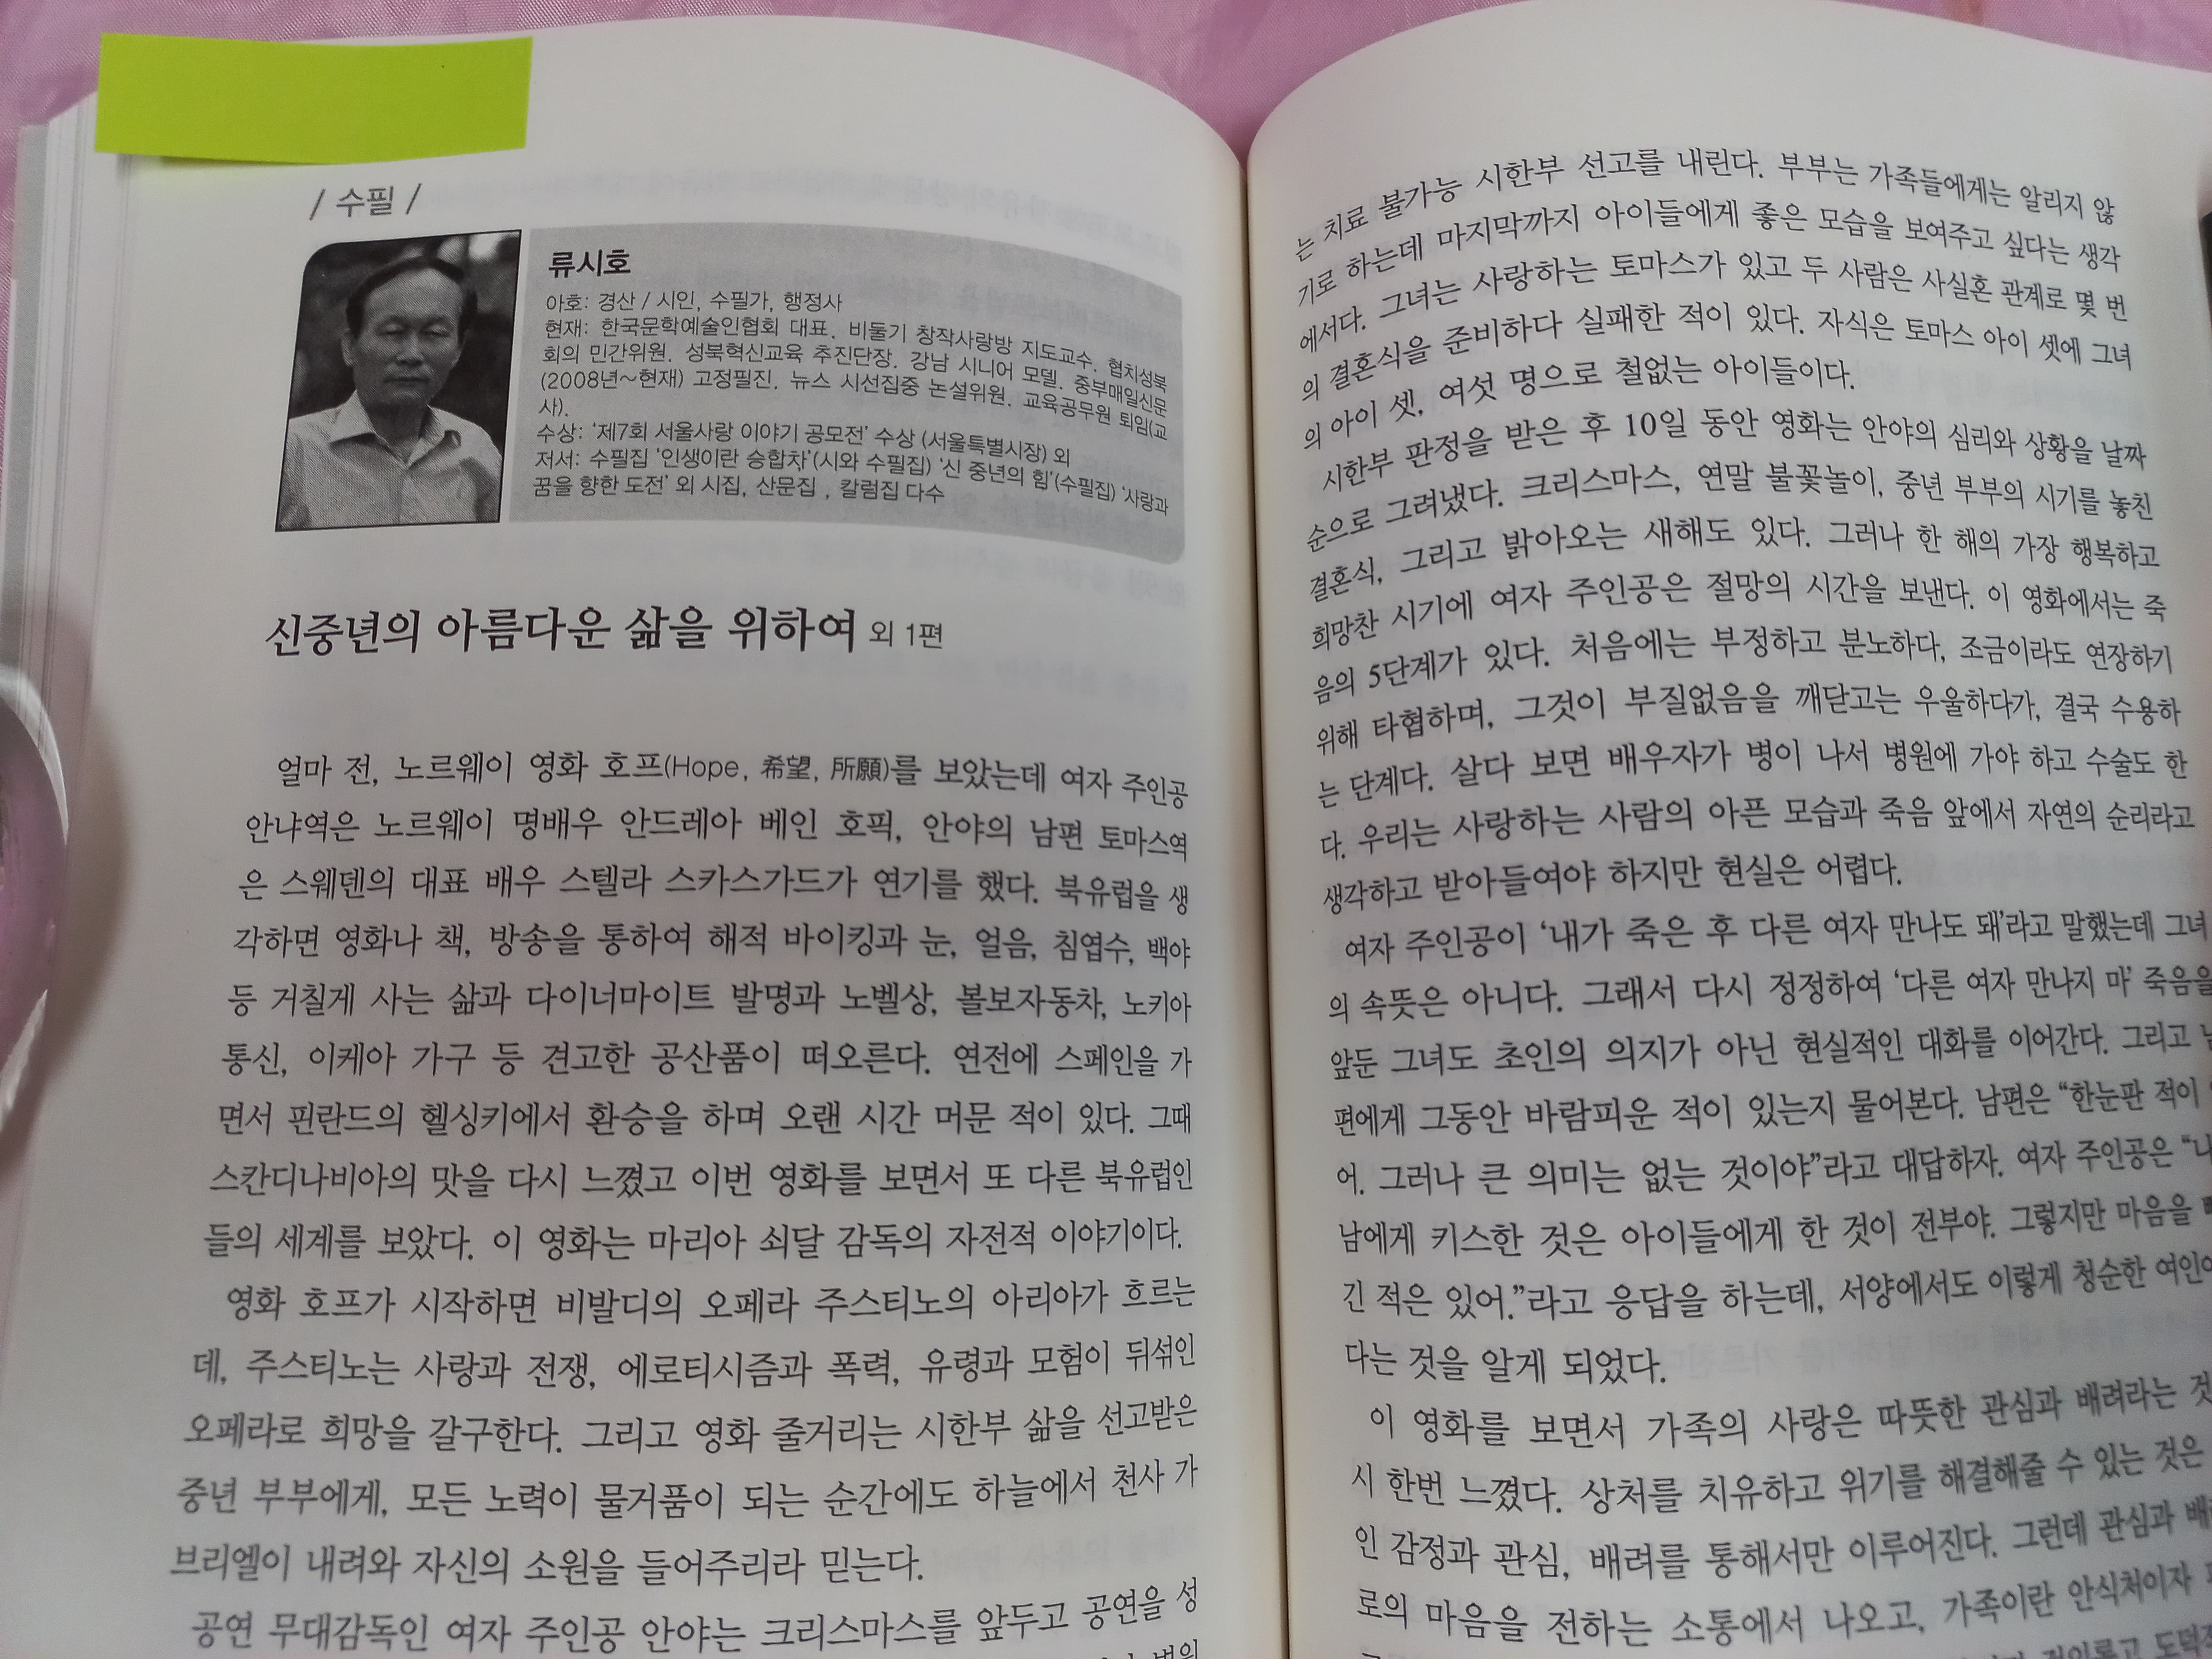 / 수필 /
류시호
아호: 경산 / 시인, 수필가, 행정사
현재: 한국문학예술인협회 대표. 비둘기 창작사랑방 지도교수. 협치성북
회의 민간위원. 성북혁신교육 추진단장. 강남 시니어 모델. 중부매일신문
(2008년～현재) 고정필진. 뉴스 시선집중 논설위원. 교육공무원 퇴임(교
사).
수상: '제7회 서울사랑 이야기 공모전' 수상 (서울특별시장) 외
저서: 수필집 '인생이란 승합차'(시와 수필집) '신 중년의 힘'(수필집) '사랑과
꿈을 향한 도전' 외 시집, 산문집 , 칼럼집 다수
신중년의 아름다운 삶을 위하여 외 1편
얼마 전, 노르웨이 영화 호프(Hope, 希望, 所願)를 보았는데 여자 주인공
안냐역은 노르웨이 명배우 안드레아 베인 호픽, 안야의 남편 토마스역
은 스웨덴의 대표 배우 스텔라 스카스가드가 연기를 했다. 북유럽을 생
각하면 영화나 책, 방송을 통하여 해적 바이킹과 눈, 얼음, 침엽수, 백야
등 거칠게 사는 삶과 다이너마이트 발명과 노벨상, 볼보자동차, 노키아
통신, 이케아 가구 등 견고한 공산품이 떠오른다. 연전에 스페인을 가
면서 핀란드의 헬싱키에서 환승을 하며 오랜 시간 머문 적이 있다. 그때
스칸디나비아의 맛을 다시 느꼈고 이번 영화를 보면서 또 다른 북유럽인
들의 세계를 보았다. 이 영화는 마리아 쇠달 감독의 자전적 이야기이다.
영화 호프가 시작하면 비발디의 오페라 주스티노의 아리아가 흐르는
데, 주스티노는 사랑과 전쟁, 에로티시즘과 폭력, 유령과 모험이 뒤섞인
오페라로 희망을 갈구한다. 그리고 영화 줄거리는 시한부 삶을 선고받은
중년 부부에게, 모든 노력이 물거품이 되는 순간에도 하늘에서 천사 가
브리엘이 내려와 자신의 소원을 들어주리라 믿는다.
공연 무대감독인 여자 주인공 안야는 크리스마스를 앞두고 공연을 성
는 치료 불가능 시한부 선고를 내린다. 부부는 가족들에게는 알리지 않
기로 하는데 마지막까지 아이들에게 좋은 모습을 보여주고 싶다는 생각
에서다. 그녀는 사랑하는 토마스가 있고 두 사람은 사실혼 관계로 몇 번
의 결혼식을 준비하다 실패한 적이 있다. 자식은 토마스 아이 셋에 그녀
의 아이 셋, 여섯 명으로 철없는 아이들이다.
시한부 판정을 받은 후 10일 동안 영화는 안야의 심리와 상황을 날짜
순으로 그려냈다. 크리스마스, 연말 불꽃놀이, 중년 부부의 시기를 놓친
결혼식, 그리고 밝아오는 새해도 있다. 그러나 한 해의 가장 행복하고
희망찬 시기에 여자 주인공은 절망의 시간을 보낸다. 이 영화에서는 죽
음의 5단계가 있다. 처음에는 부정하고 분노하다, 조금이라도 연장하기
위해 타협하며, 그것이 부질없음을 깨닫고는 우울하다가, 결국 수용하
는 단계다. 살다 보면 배우자가 병이 나서 병원에 가야 하고 수술도 한
다. 우리는 사랑하는 사람의 아픈 모습과 죽음 앞에서 자연의 순리라고
생각하고 받아들여야 하지만 현실은 어렵다.
여자 주인공이 '내가 죽은 후 다른 여자 만나도 돼'라고 말했는데 그녀
의 속뜻은 아니다. 그래서 다시 정정하여 '다른 여자 만나지 마' 죽음을
앞둔 그녀도 초인의 의지가 아닌 현실적인 대화를 이어간다. 그리고
편에게 그동안 바람피운 적이 있는지 물어본다. 남편은 "한눈판 적이
어. 그러나 큰 의미는 없는 것이야"라고 대답하자. 여자 주인공은 "나
남에게 키스한 것은 아이들에게 한 것이 전부야. 그렇지만 마음을
긴 적은 있어."라고 응답을 하는데, 서양에서도 이렇게 청순한
다는 것을 알게 되었다.
이 영화를 보면서 가족의 사랑은 따뜻한 관심과 배려라는
시 한번 느꼈다. 상처를 치유하고 위기를 해결해줄 수 있는 것은
인 감정과 관심, 배려를 통해서만 이루어진다. 그런데 관심과
로의 마음을 전하는 소통에서 나오고, 가족이란 안식처이자